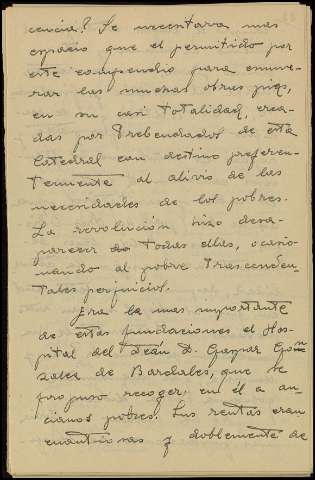 cencia? Se necesitara mas
espacio que el permitido por
este compendio para enume-
rar las muchas obras pias,
en su casi totalidad, crea-
das por Prebendados de esta
Catedral con destino preferen-
temente al alivio de las
necesidades de los pobres.
La revolución hizo desa-
parecer todas ellas, ocasio-
nando al pobre trascenden-
tales perjuicios.
Era la mas importante
de estas fundaciones el Hos-
pital del Deán D. Gaspar Gon
zalez de Bardales, que se
propuso recoger en él a an-
cianos pobres. Sus rentas eran
cuantiosas y doblemente de